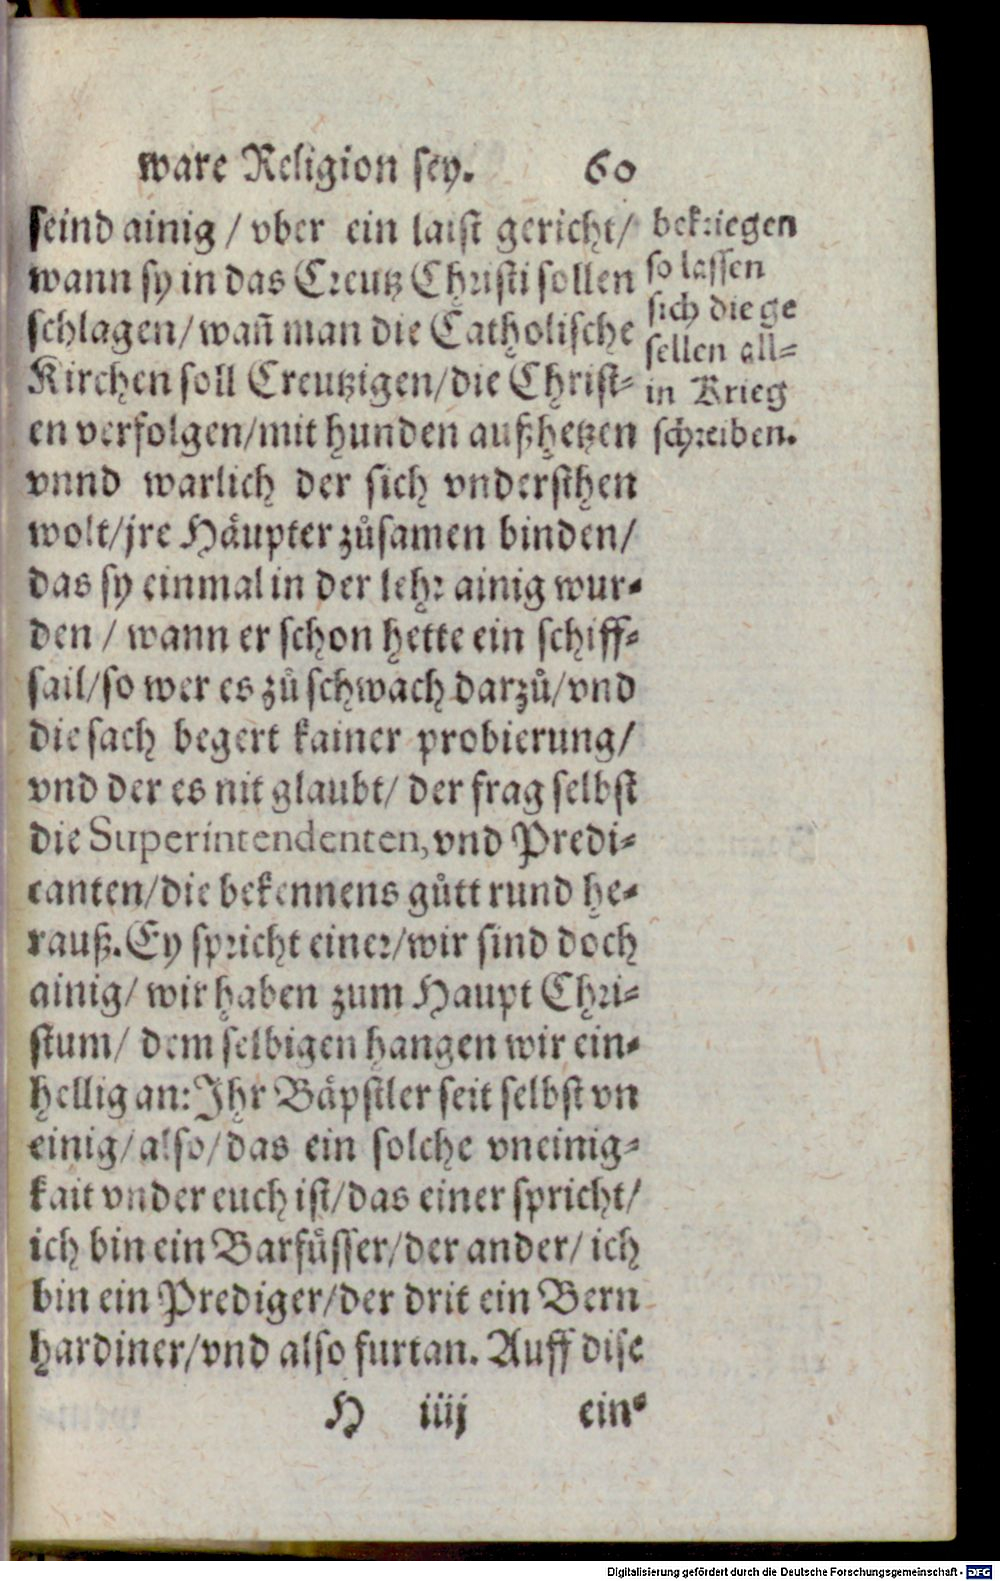 ware Religion sey. 60
seind ainig / vber ein laist gericht/
wann sy in das Creutz Christi sollen
schlagen/ wañ man die Catholische
Kirchen soll Creutzigen/die Christ-
en verfolgen/mit hunden außhetzen
vnnd warlich der sich vndersthen
wolt/jre Häupter zůsamen binden/
das sy einmal in der lehr ainig wur-
den / wann er schon hette ein schiff-
sail/so wer es zů schwach darzů/vnd
die sach begert kainer probierung/
vnd der es nit glaubt/ der frag selbst
die Superintendenten, vnd Predi-
canten/die bekennens gůtt rund he-
rauß. Ey spricht einer/wir sind doch
ainig/ wir haben zum Haupt Chri-
stum/ dem selbigen hangen wir ein-
hellig an: Ihr Bäpstler seit selbst vn
einig/also/das ein solche vneinig-
kait vnder euch ist/das einer spricht/
ich bin ein Barfüsser/der ander/ ich
bin ein Prediger/der drit ein Bern
hardiner/vnd also furtan. Auff dise
H iiij ein-
bekriegen
so lassen
sich die ge
sellen all-
in Krieg
schreiben.
Digitalisierung gefördert durch die Deutsche Forschungsgemeinschaft - DFG